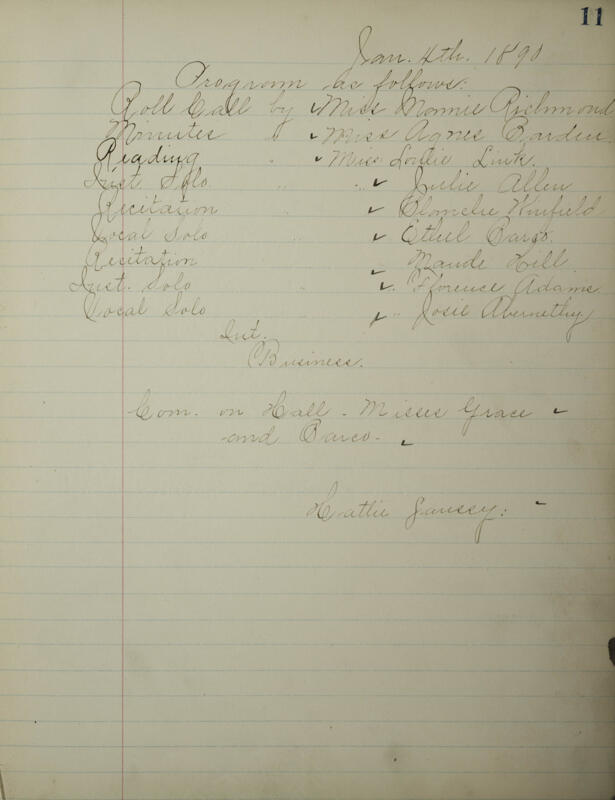 11
Jan. 4th. 1890
Program as follows:
Roll Call by ✓ Miss Monnie Richmond
Minutes " ✓ Miss Agnes Barden
Reading " ✓ Miss Loulie Link.
Inst. Solo " " ✓ Julie Allen
Recitation " ✓ Blanche Winfield
Vocal Solo " ✓ Ethel Barco.
Recitation ✓ Maude Hill
Inst. Solo ✓ " Florence Adams
Vocal Solo ✓ " Josie Abernethy
Int.
Business.
Com. on Hall - Misses Grace ✓
and Barco - ✓
Hattie